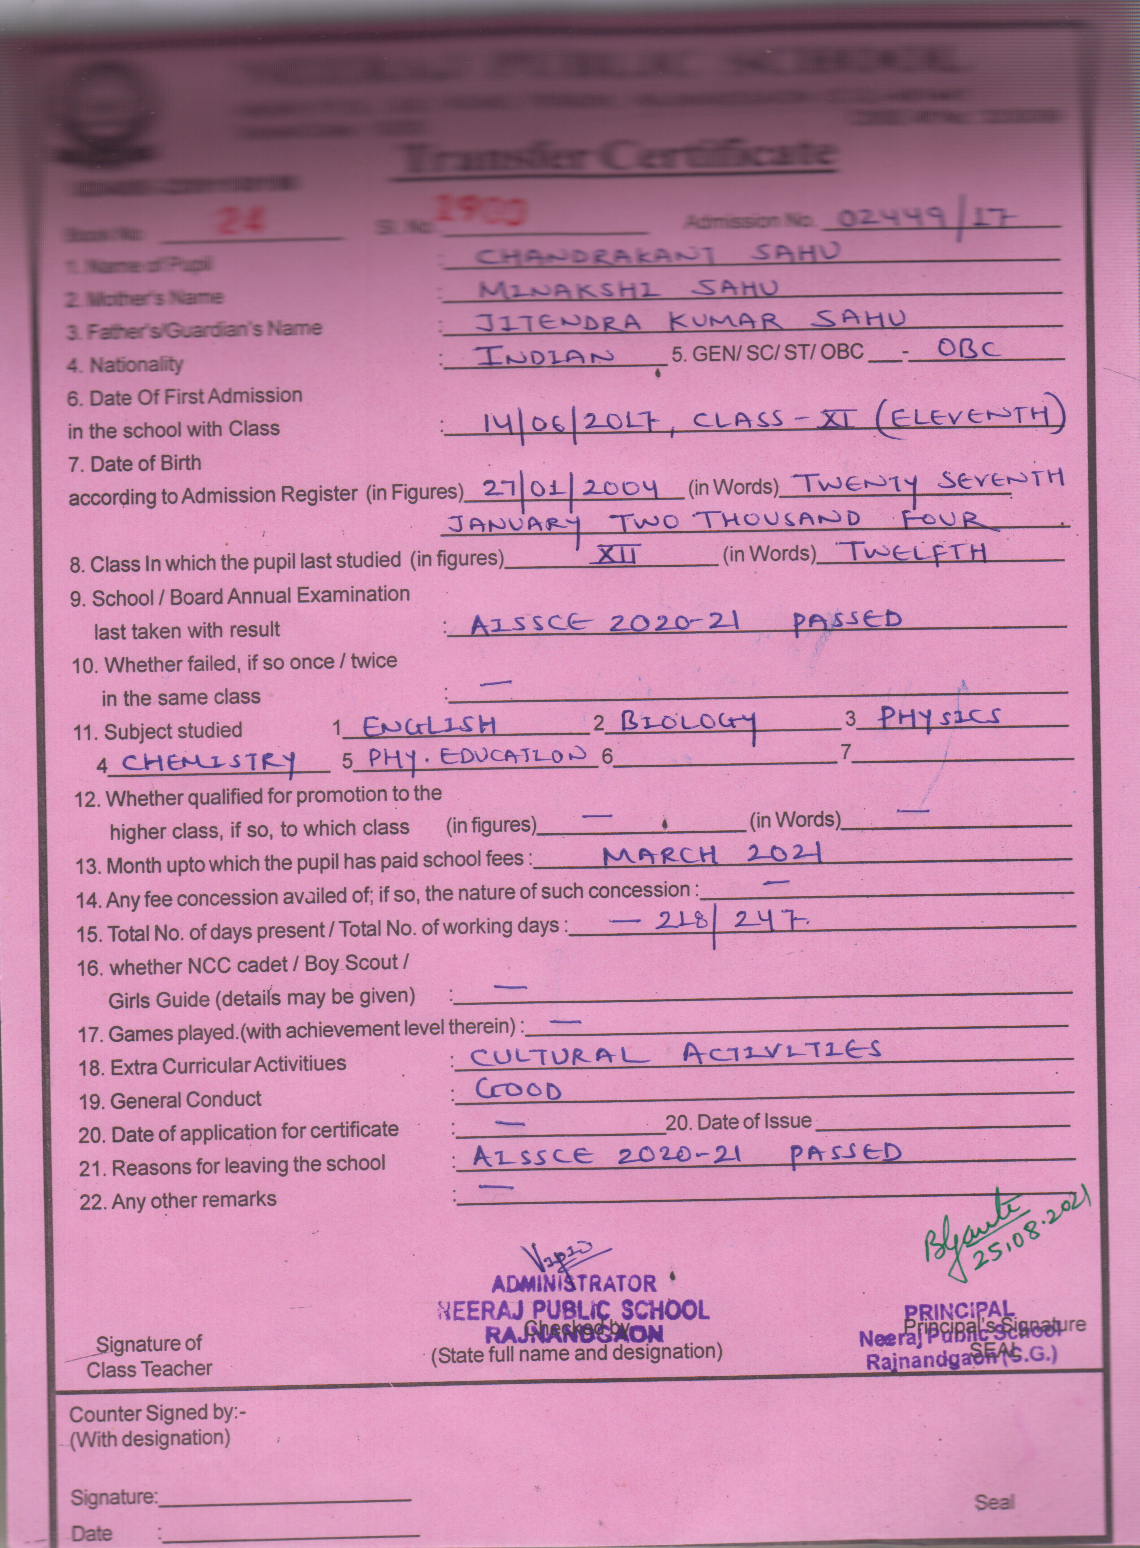 NEERAJ PUBLIC SCHOOL
Transfer Certificate
Book No. 24 Sl. No. 1900 Admission No. 02449/17
1. Name of Pupil : CHANDRAKANT SAHU
2. Mother's Name : MINAKSHI SAHU
3. Father's/Guardian's Name : JITENDRA KUMAR SAHU
4. Nationality : INDIAN 5. GEN/ SC/ ST/ OBC - OBC
6. Date Of First Admission
in the school with Class : 14/06/2017, CLASS - XI (ELEVENTH)
7. Date of Birth
according to Admission Register (in Figures) 27/01/2004 (in Words) TWENTY SEVENTH
JANUARY TWO THOUSAND FOUR
8. Class In which the pupil last studied (in figures) XII (in Words) TWELFTH
9. School / Board Annual Examination
last taken with result : AISSCE 2020-21 PASSED
10. Whether failed, if so once / twice
in the same class : —
11. Subject studied 1 ENGLISH 2 BIOLOGY 3 PHYSICS
4 CHEMISTRY 5 PHY. EDUCATION 6 7
12. Whether qualified for promotion to the
higher class, if so, to which class (in figures) — (in Words) —
13. Month upto which the pupil has paid school fees : MARCH 2021
14. Any fee concession availed of; if so, the nature of such concession : —
15. Total No. of days present / Total No. of working days : — 218/247.
16. whether NCC cadet / Boy Scout /
Girls Guide (details may be given) : —
17. Games played.(with achievement level therein) : —
18. Extra Curricular Activitiues : CULTURAL ACTIVITIES
19. General Conduct : GOOD
20. Date of application for certificate : — 20. Date of Issue
21. Reasons for leaving the school : AISSCE 2020-21 PASSED
22. Any other remarks : —
25.08.2021
ADMINISTRATOR
NEERAJ PUBLIC SCHOOL
RAJNANDGAON
Checked by
(State full name and designation)
PRINCIPAL
Principal's Signature
Neeraj Public School
SEAL
Rajnandgaon (C.G.)
Signature of
Class Teacher
Counter Signed by:-
(With designation)
Signature:
Seal
Date :